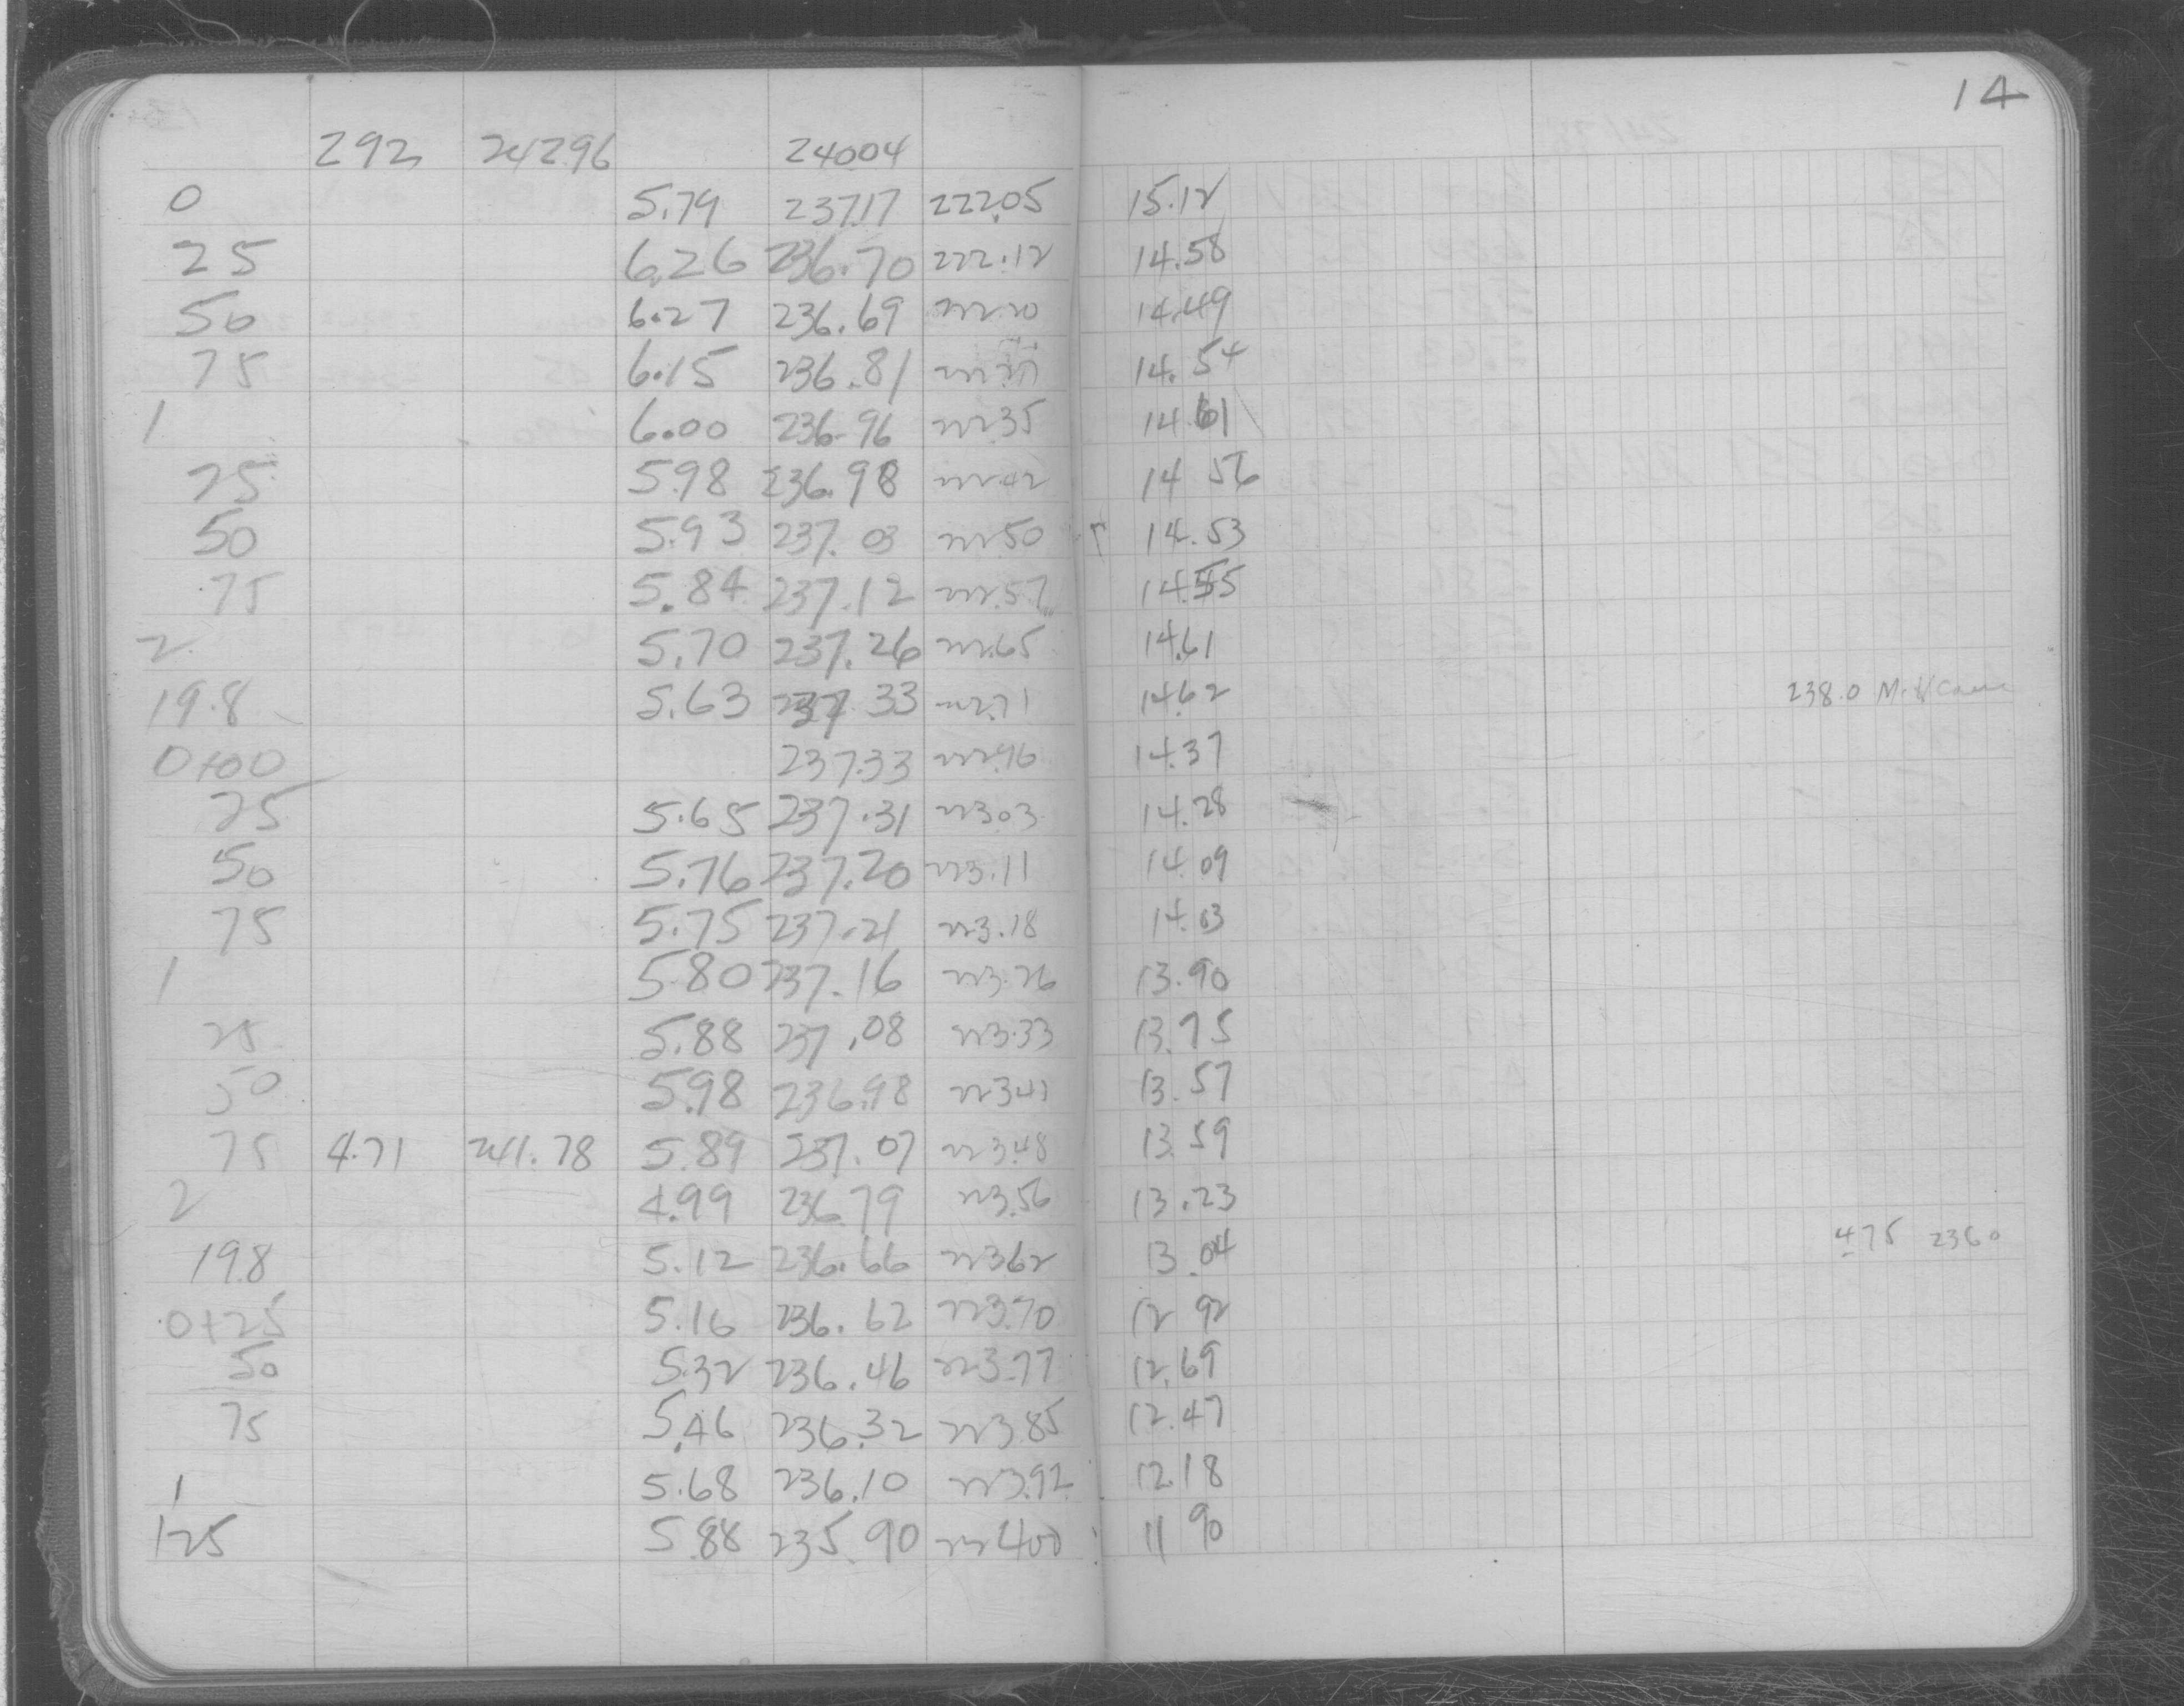 14
292 24296 24004
0 5.79 237.17 222.05 15.12
25 6.26 236.70 222.12 14.58
50 6.27 236.69 222.20 14.49
75 6.15 236.81 222.27 14.54
1 6.00 236.96 222.35 14.61
25 5.98 236.98 222.42 14 56
50 5.93 237.03 222.50 14.53
75 5.84 237.12 222.57 14.55
2 5.70 237.26 222.65 14.61
19.8 5.63 237.33 222.71 14.62 238.0
0+00 237.33 222.96 14.37
25 5.65 237.31 223.03 14.28
50 5.76 237.20 223.11 14.09
75 5.75 237.21 223.18 14.03
1 5.80 237.16 223.26 13.90
25 5.88 237.08 223.33 13.75
50 5.98 236.98 223.41 13.57
75 4.71 241.78 5.89 237.07 223.48 13.59
2 4.99 236.79 223.56 13.23
19.8 5.12 236.66 223.62 13.04 475 2360
0+25 5.16 236.62 223.70 12 92
50 5.32 236.46 223.77 12.69
75 5.46 236.32 223.85 12.47
1 5.68 236.10 223.92 12.18
125 5.88 235.90 22400 11 90